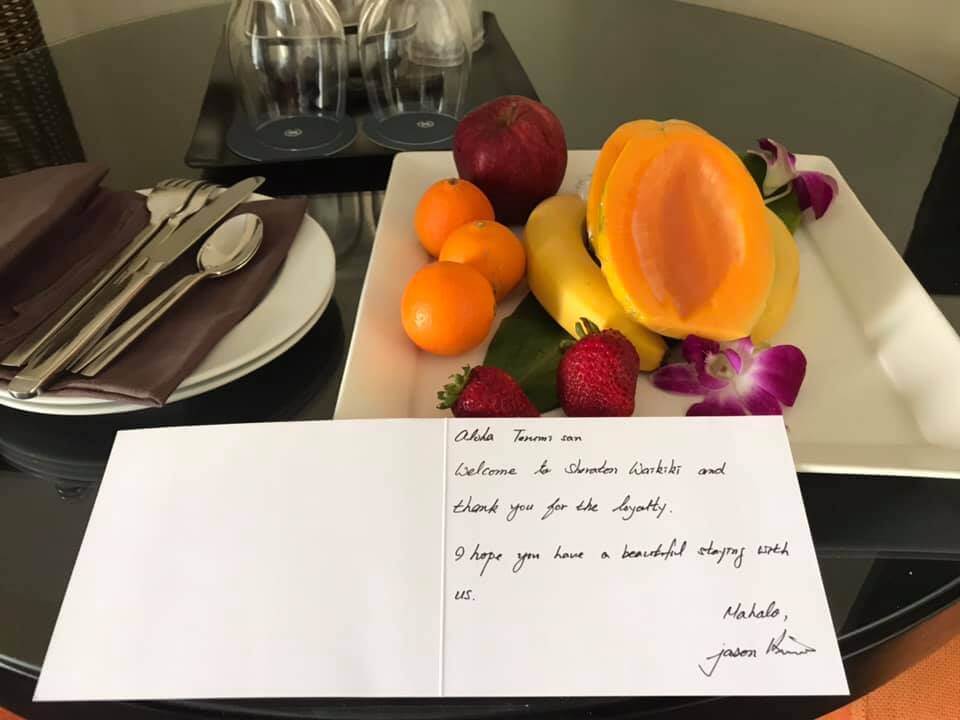 Aloha Tonomi san
Welcome to Sheraton Waikiki and
thank you for the loyalty.
I hope you have a beautiful staying with
us.
Mahalo,
jason